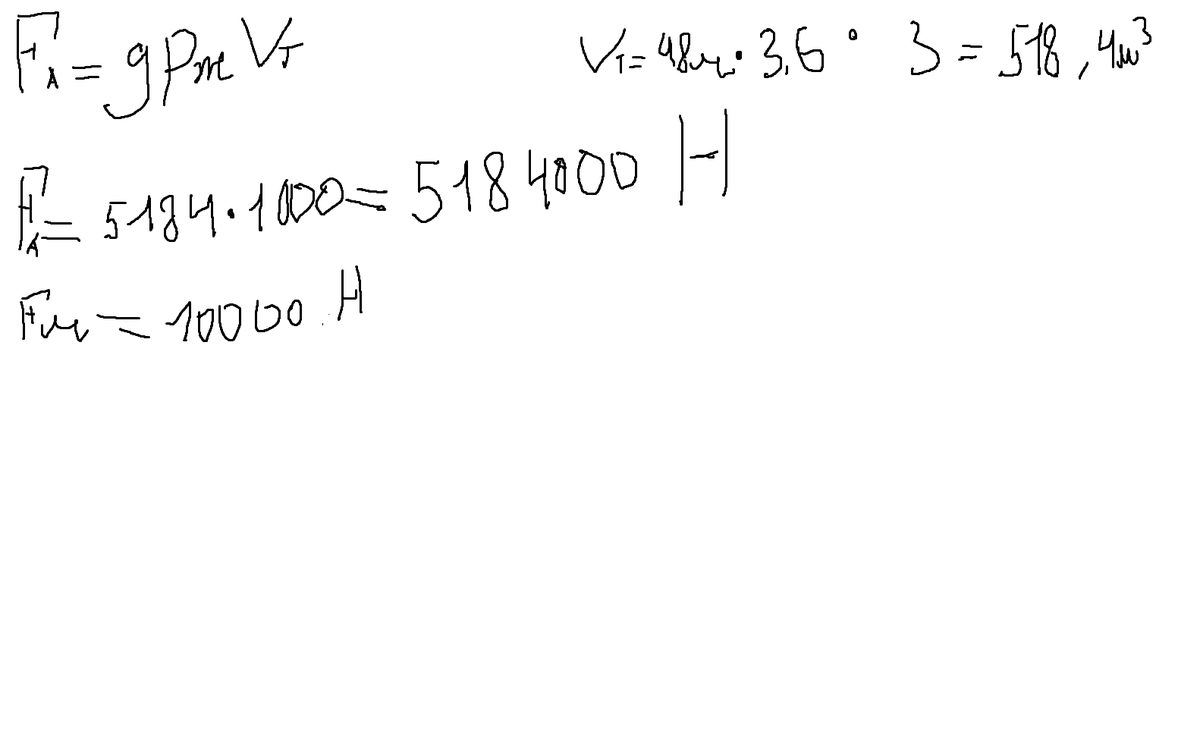 Fᴀ = gρж Vт
Vт = 48м · 3,6 · 3 = 518,4м³
Fᴀ = 5184 · 1000 = 5184000 Н
Fт = 10000 Н